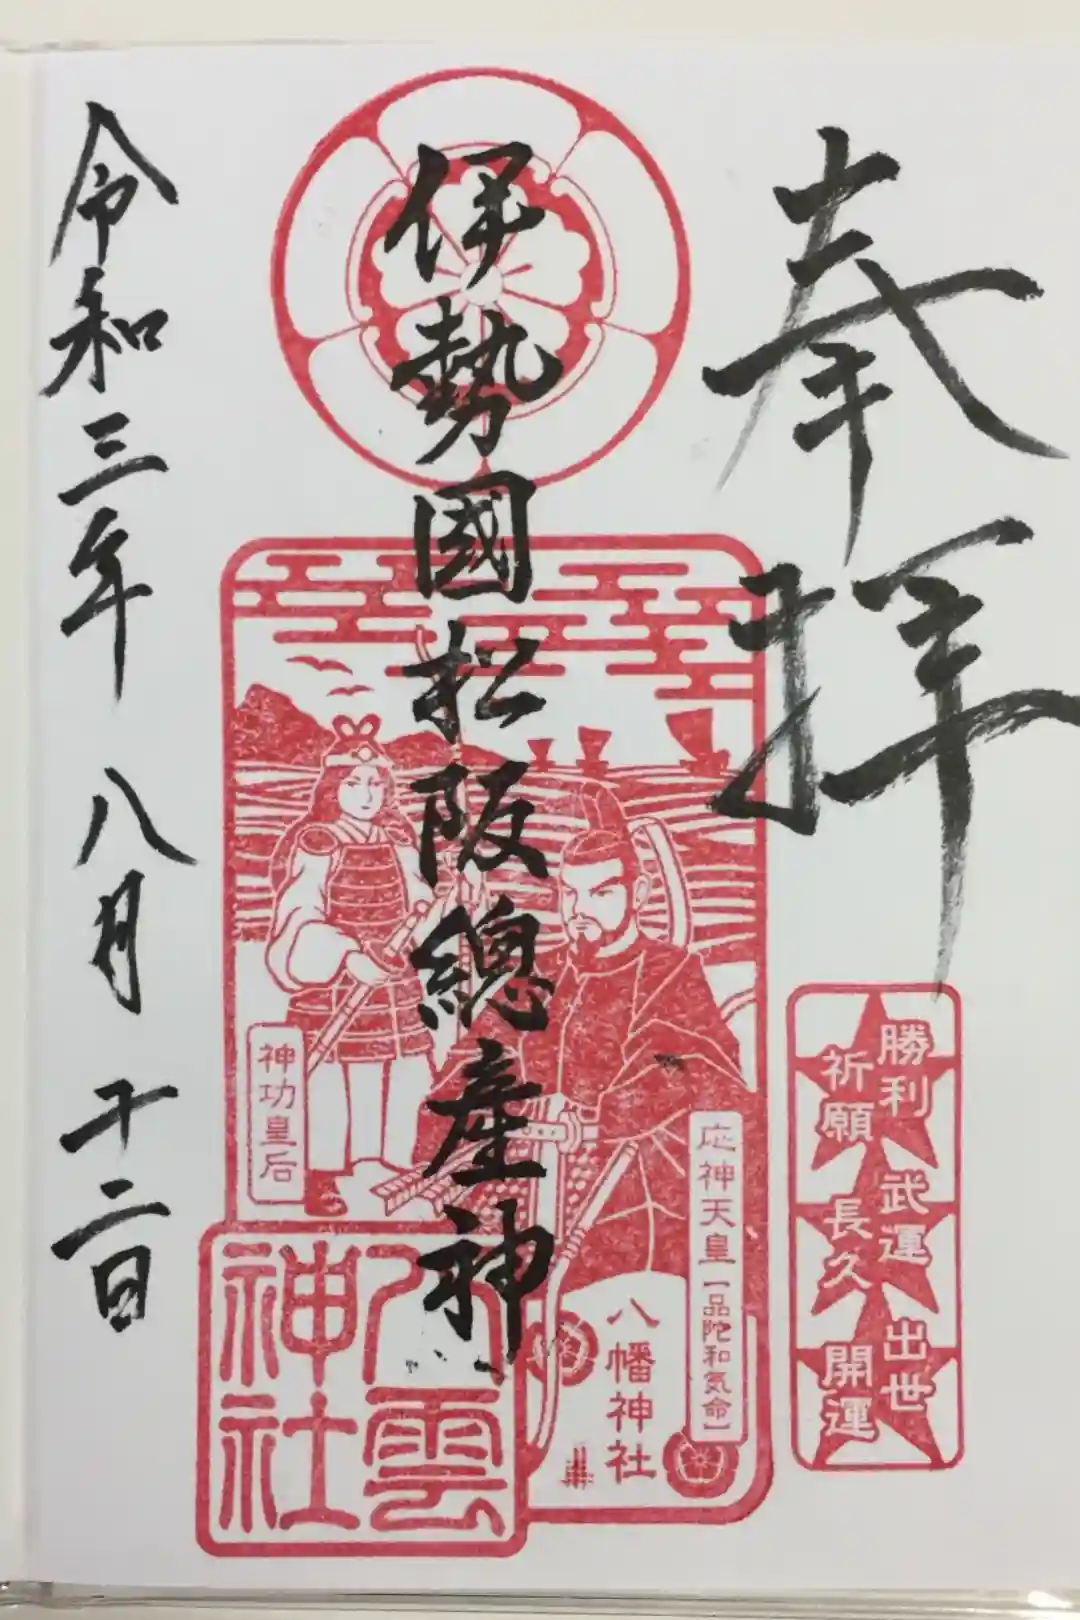 奉拝
勝利
祈願
武運
長久
出世
開運
伊勢國松阪總産神
神功皇后
応神天皇【品陀和気命】
八幡神社
八雲
神社
令和三年 八月 十二日